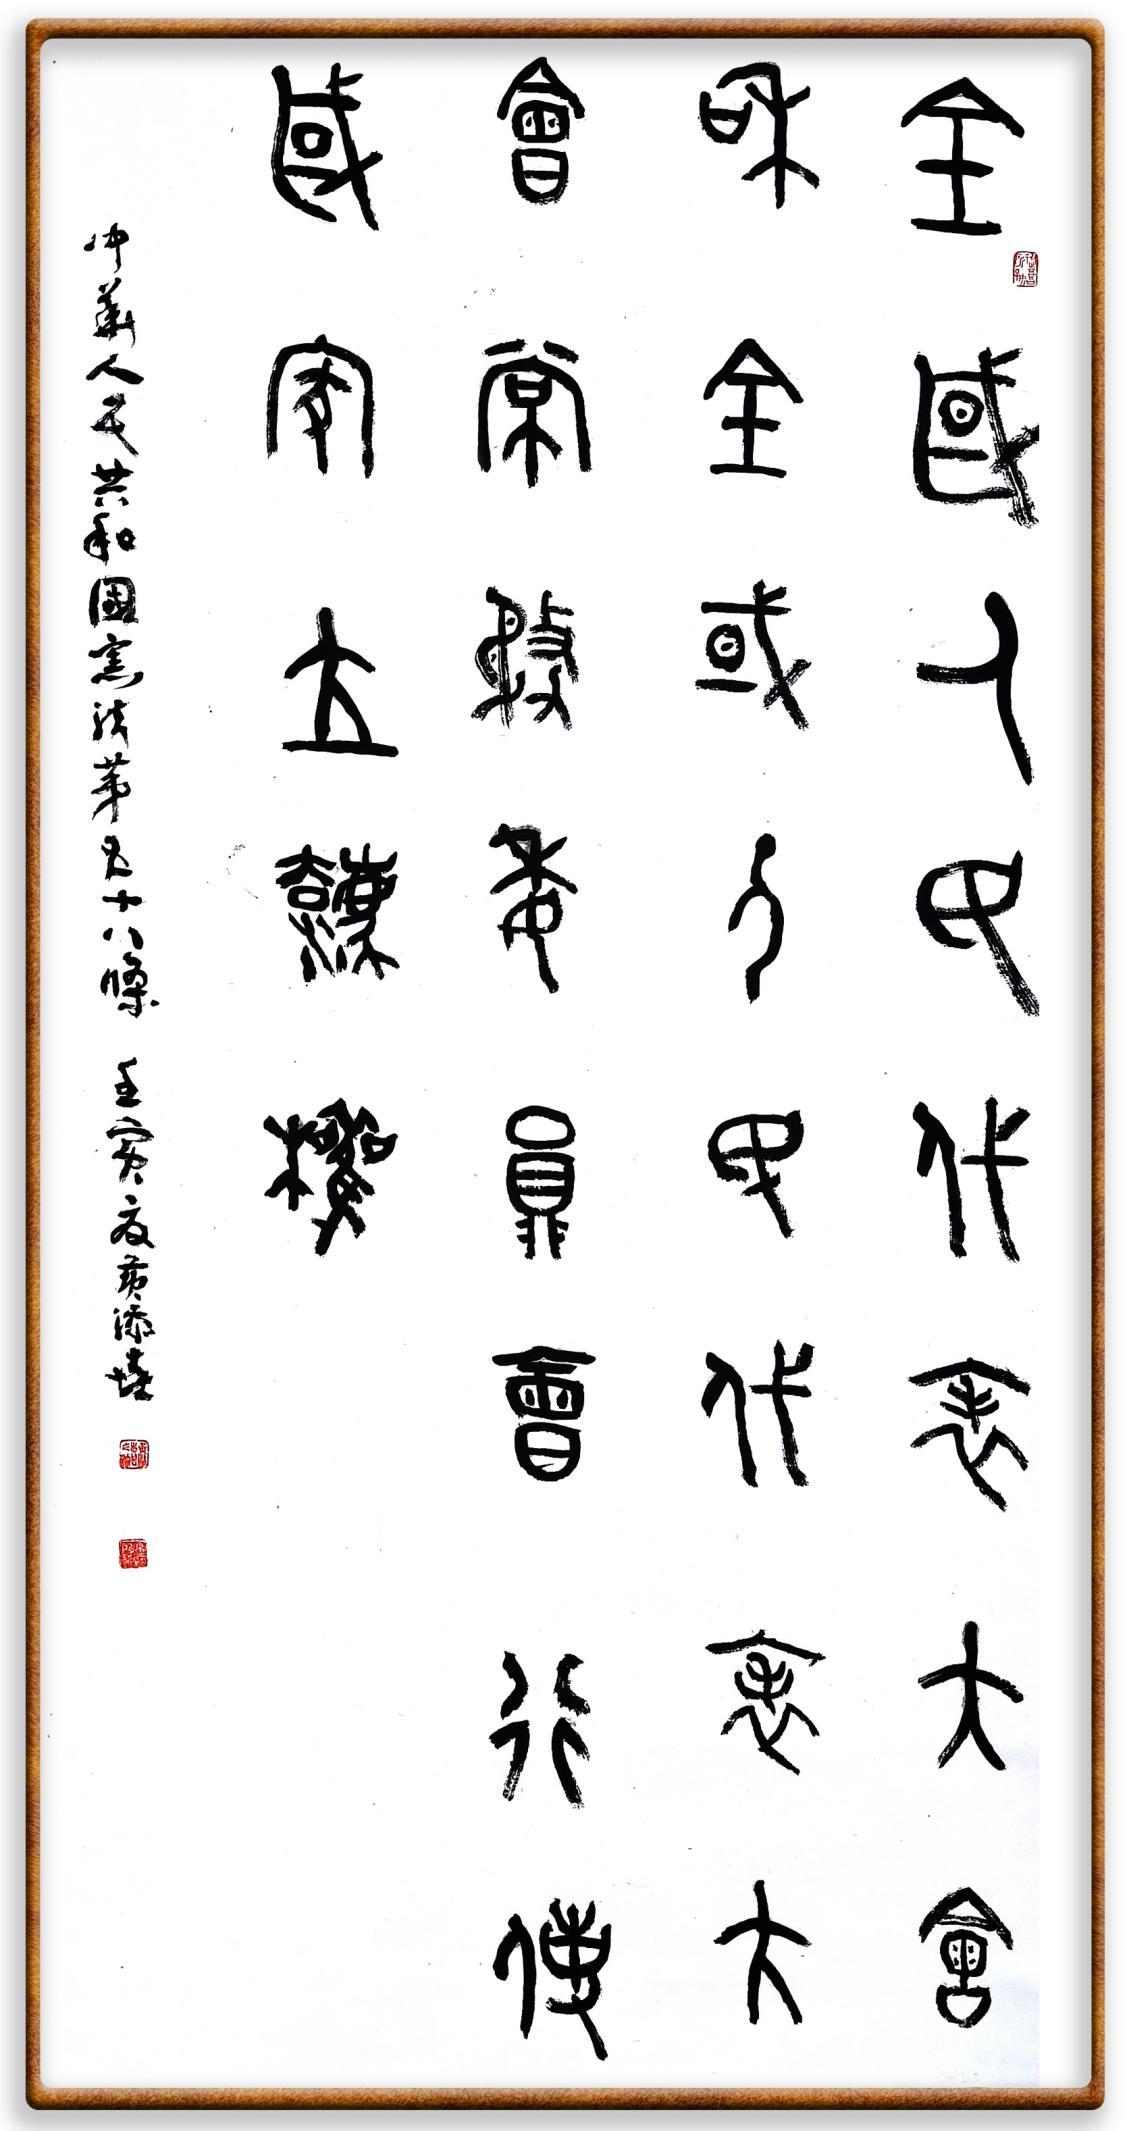 全國人民代表大會
和全或人民代表大
會常務委員會行使
國家立法權
中華人民共和國憲法第五十八條 壬寅夏黃添培